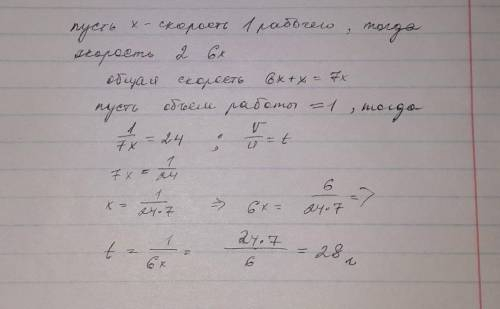 пусть x - скорость 1 рабочего, тогда
скорость 2 6x
общая скорость 6x+x = 7x
пусть объем работы = 1, тогда
1/7x = 24 ; V/v = t
7x = 1/24
x = 1/24·7 => 6x = 6/24·7 =>
t = 1/6x = 24·7/6 = 28 ч